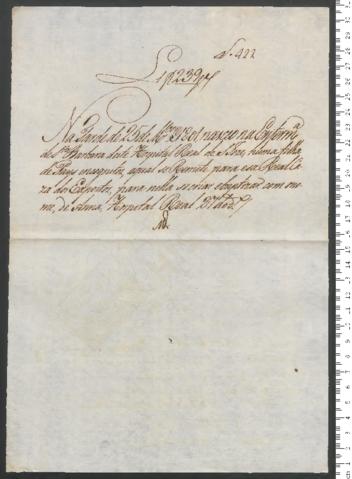 N. 422
L 1 f 239
Na tarde de 25 de 1801 nasceo na Enfermª
de S. Barbara deste Hospital Real de S. Joze, huma filha
de Pays incognitos, a qual se Remete para essa Real Ca
za dos Expostos, para nella se criar e baptizar com o no
me, de Anna, Hospital Real